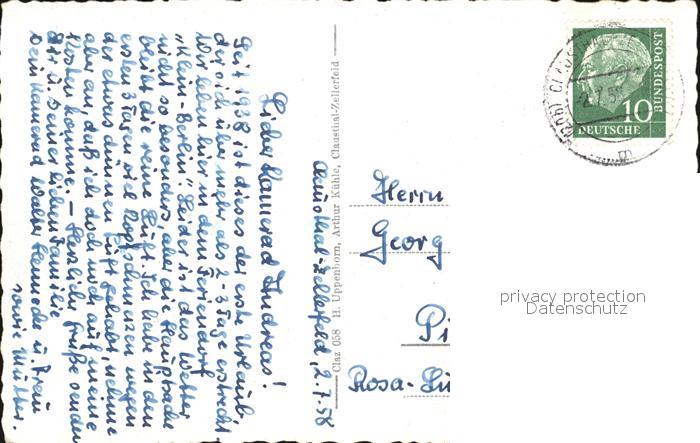 Clausthal-Zellerfeld, 2.7.58
Lieber Kamerad Andreas!
Seit 1938 ist dieses der erste Urlaub,
der sich über mehr als 2-3 Tage erstreckt
Wir leben hier in dem Feriendorf
"Klein-Berlin". Leider ist das Wetter
nicht so besonders, aber die Hauptsache
bleibt die reine Luft. Ich habe in den
ersten 3 Tagen viel Kopfschmerzen wegen
der etwas dünnen Luft gehabt, nehme
aber an, daß ich doch noch auf meine
Kosten komme. – Herzliche Grüße sendet
Dir u. Deiner lieben Familie
Dein Kamerad Walter u. Frau
sowie Mutter.
Claz 058 H. Uppenborn, Arthur Kühle, Clausthal-Zellerfeld
Herrn
Georg
Pi
Rosa-Lu
10
DEUTSCHE
BUNDESPOST
privacy protection
Datenschutz